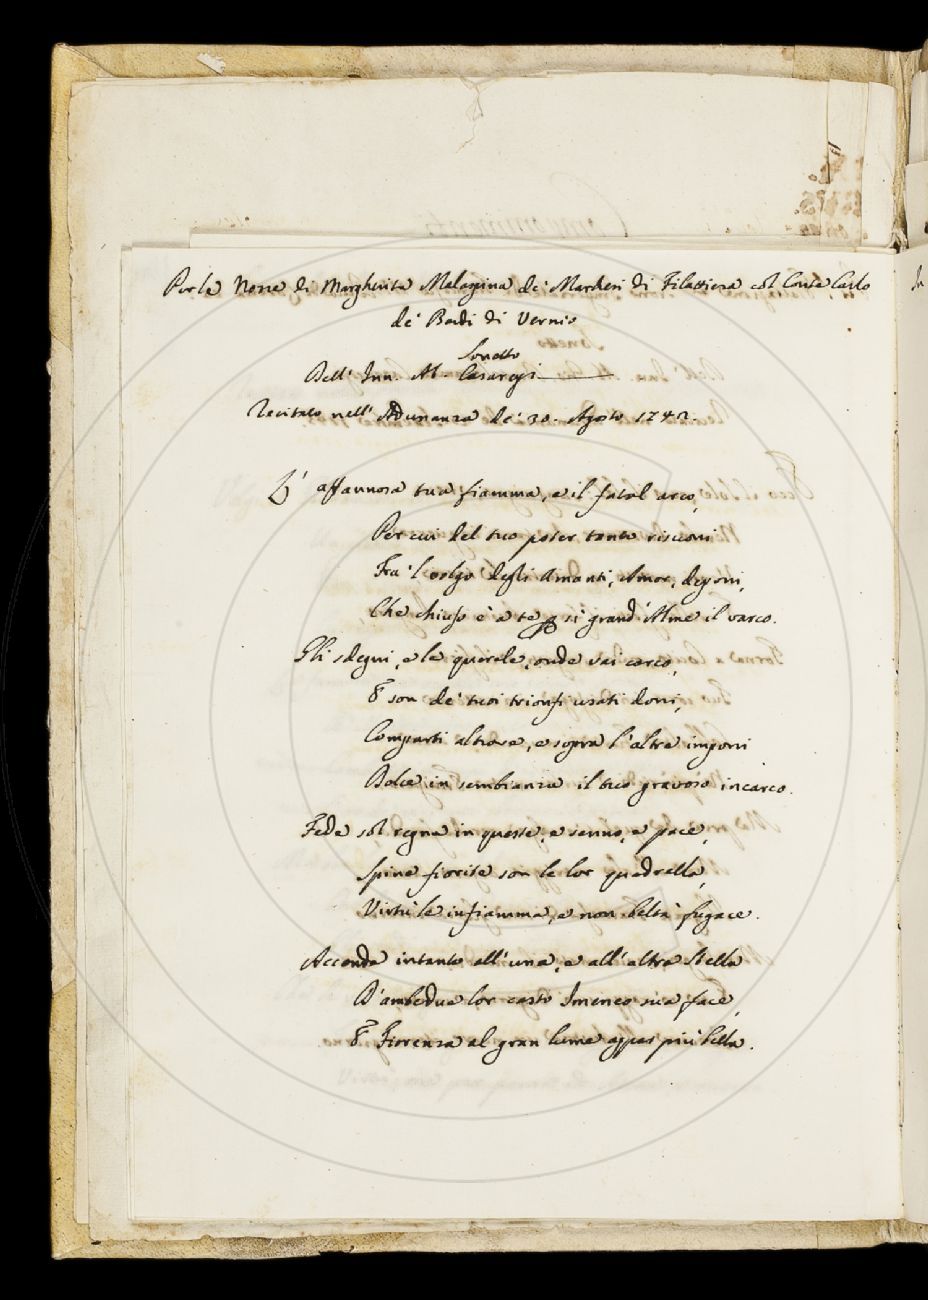 Per le Nozze di Margherita Malaspina de' Marchesi di Filattiera col Conte Carlo
de' Bardi di Vernio
Sonetto
Dell' Inn. Ab. Casaregi
Recitato nell' Adunanza de' 30. Agosto 1742.
L' affannosa tua fiamma, e il fatal arco,
Per cui del tuo poter tanto risuoni
Fra 'l volgo degli Amanti, Amor, deponi,
Che chiuso è a te per sì grand' Alme il varco.
Gli sdegni, e le querele, onde vai carco,
E son de' tuoi trionfi usati doni,
Comparti altrove, e sopra l' altre imponi
Dolce in sembianza il tuo gravoso incarco.
Fede sol regna in queste, e senno, e pace,
Spine fiorite son le lor quadrella,
Virtù le infiamma, e non beltà fugace.
Accende intanto all' una, e all' altra Stella
D' ambedue lor casto Imeneo sua face,
E Fiorenza al gran lume appar più bella.